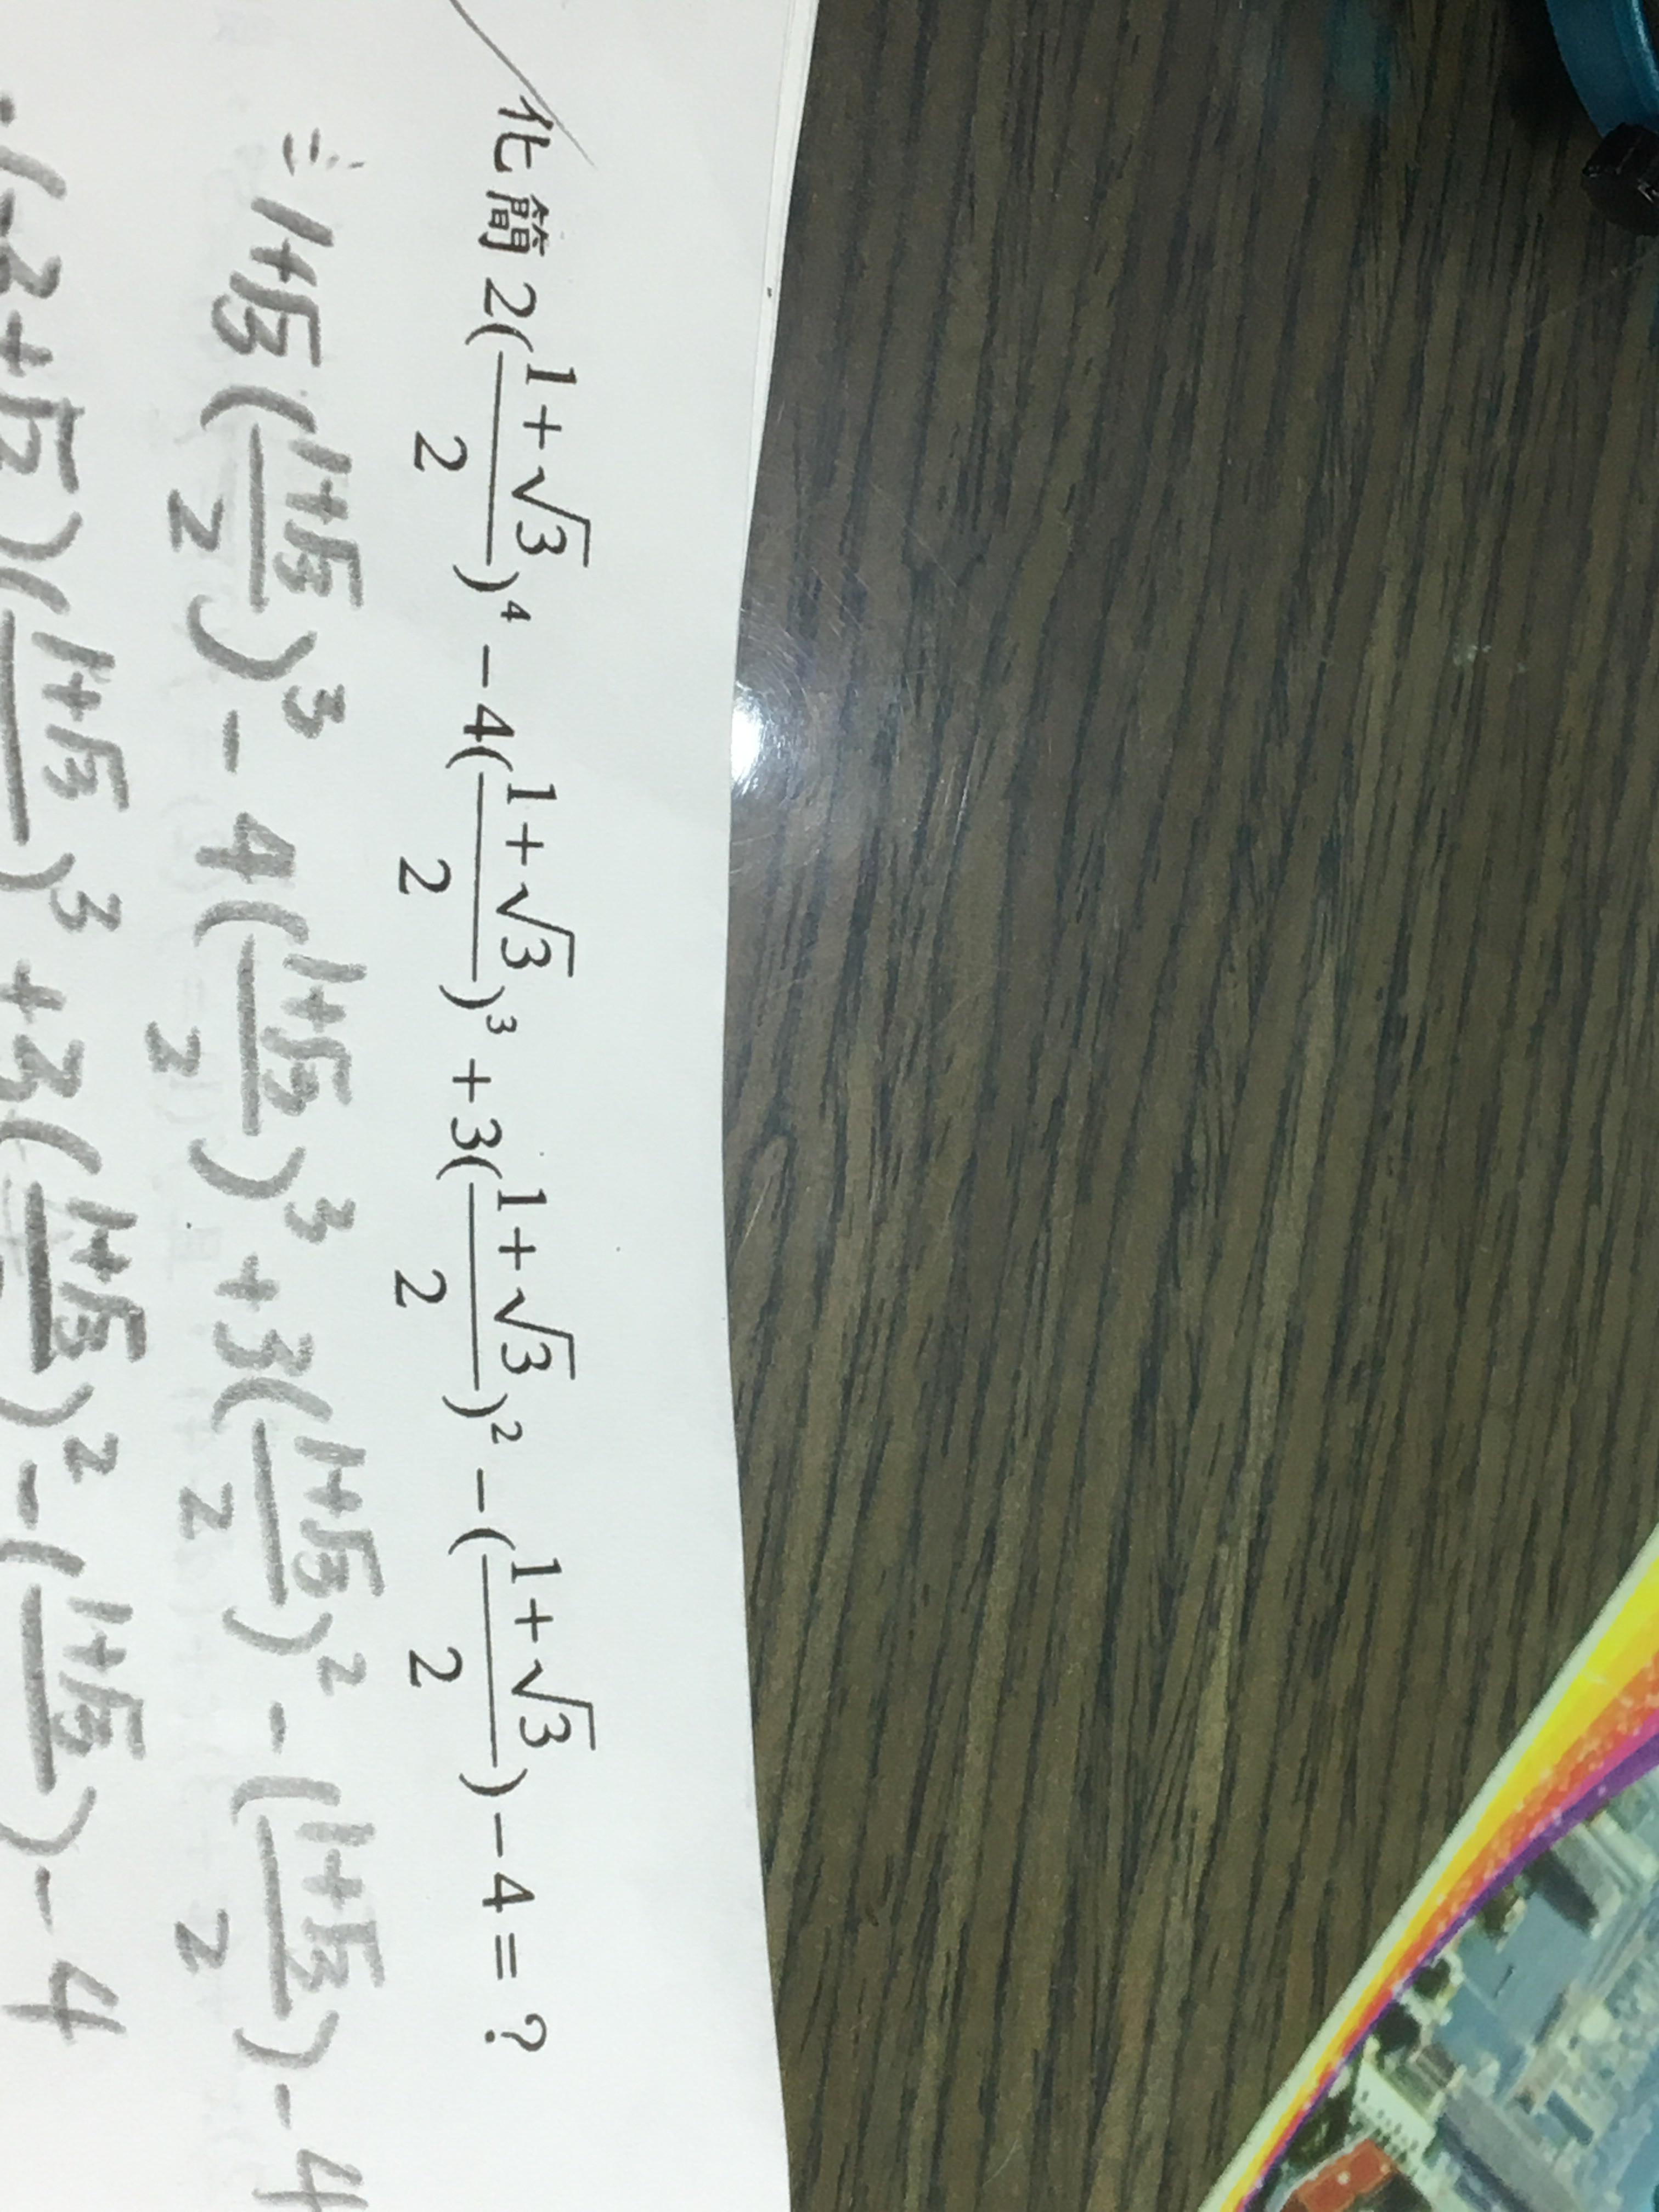 化簡 2(\frac{1+\sqrt{3}}{2})^4 - 4(\frac{1+\sqrt{3}}{2})^3 + 3(\frac{1+\sqrt{3}}{2})^2 - (\frac{1+\sqrt{3}}{2}) - 4 = ?
= 1+\sqrt{3} (\frac{1+\sqrt{3}}{2})^3 - 4(\frac{1+\sqrt{3}}{2})^3 + 3(\frac{1+\sqrt{3}}{2})^2 - (\frac{1+\sqrt{3}}{2}) - 4
(-3+\sqrt{2})(\frac{1+\sqrt{3}}{})^3 + 3(\frac{1+\sqrt{3}}{})^2 - (\frac{1+\sqrt{3}}{}) - 4